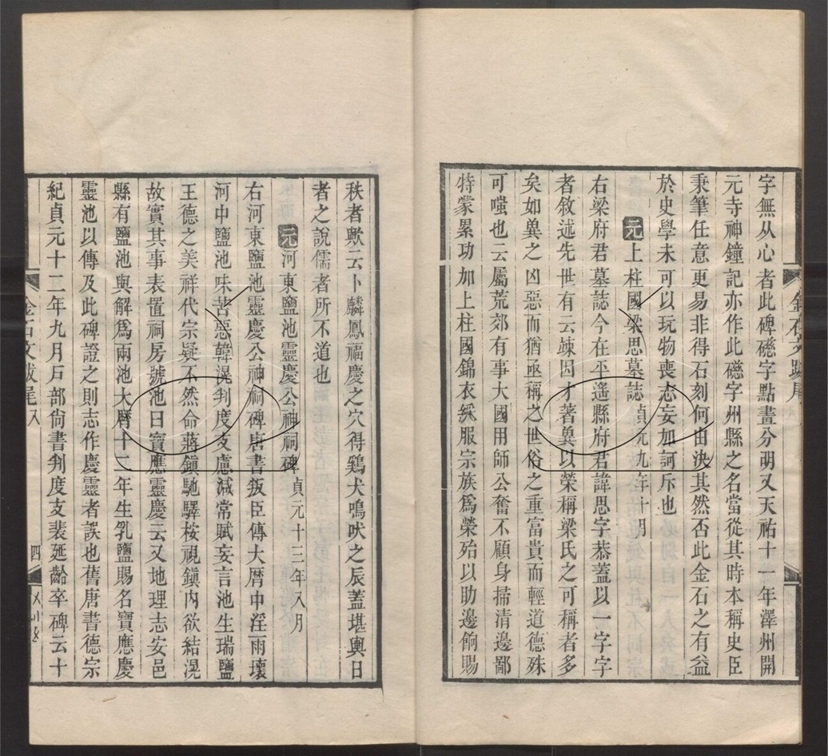 字無从心者此碑礠字點畫分明又天祐十一年澤州開
元寺神鐘記亦作此礠字州縣之名當從其時本稱史臣
秉筆任意更易非得石刻何由決其然否此金石之有益
於史學未可以玩物喪志妄加訶斥也
元上柱國梁思墓誌貞元九年十月
右梁府君墓誌今在平遙縣府君諱思字恭蓋以一字字
者敘述先世有云竦因才著兾以榮稱梁氏之可稱者多
矣如兾之凶惡而猶亟稱之世俗之重富貴而輕道德殊
可嗤也云屬荒郊有事大國用師公奮不顧身掃清邊鄙
特蒙累功加上柱國錦衣綵服宗族為榮殆以助邊餉賜
秩者歟云卜麟鳳福慶之穴得鷄犬鳴吠之辰蓋堪輿日
者之說儒者所不道也
元河東鹽池靈慶公神祠碑貞元十三年八月
右河東鹽池靈慶公神祠碑唐書叛臣傳大厯中淫雨壞
河中鹽池味苦惡韓滉判度支慮減常賦妄言池生瑞鹽
王德之美祥代宗疑不然命蔣鎮馳驛按視鎮內欲結滉
故實其事表置祠房號池曰寶應靈慶云又地理志安邑
縣有鹽池與解為兩池大厯十二年生乳鹽賜名寶應慶
靈池以傳及此碑證之則志作慶靈者誤也舊唐書德宗
紀貞元十二年九月戶部尚書判度支裴延齡卒碑云十
金石文跋尾八
四